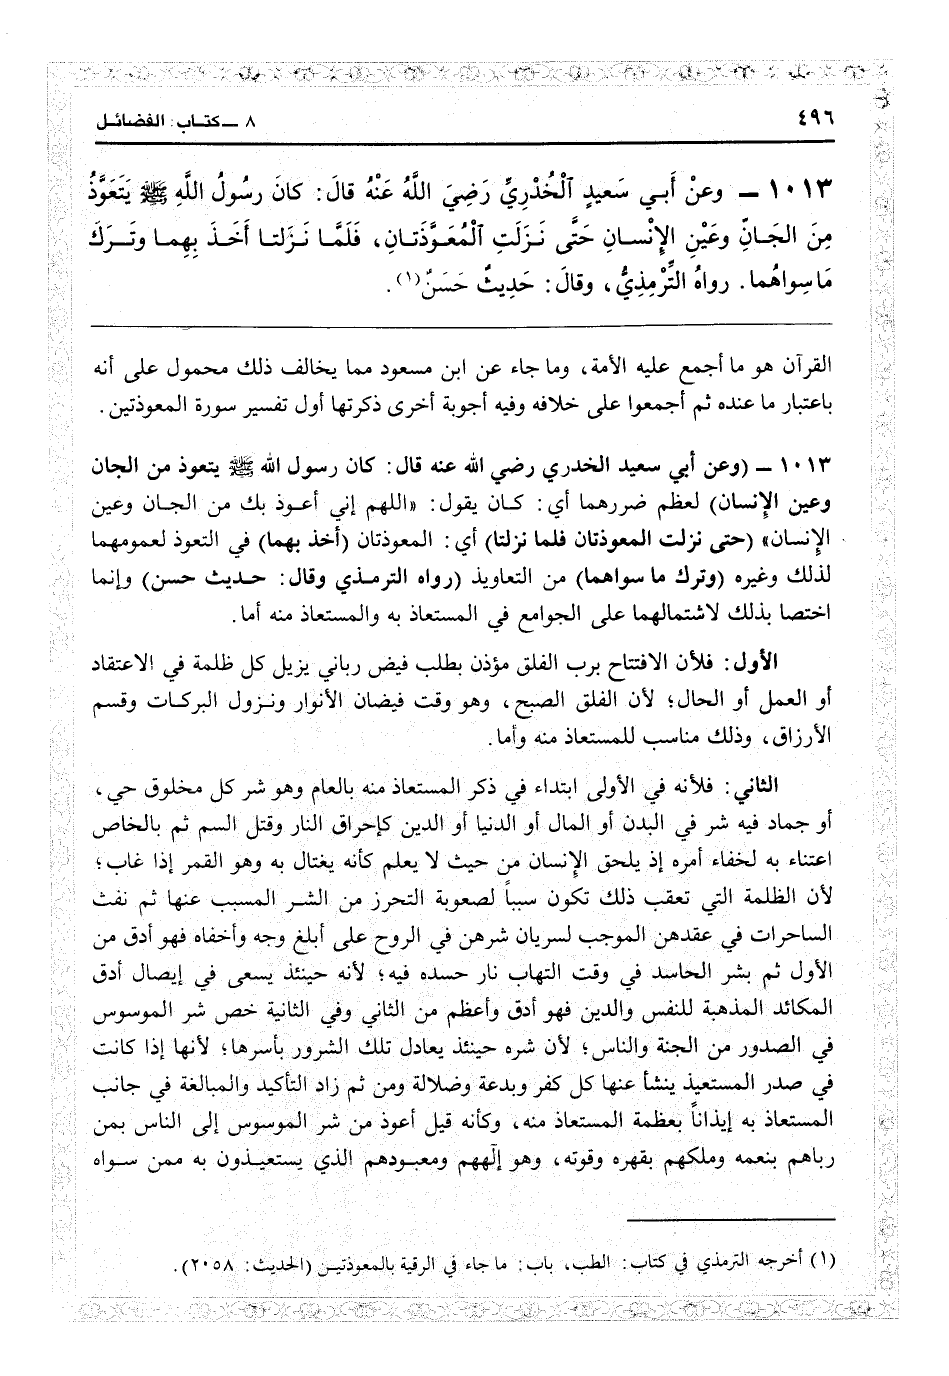 ٤٩٦
٨ ـ كتاب: الفضائل
١٠١٣ ـ وعنْ أَبي سَعيدٍ ٱلْخُدْرِيِّ رَضِيَ اللَّهُ عَنْهُ قالَ: كانَ رسُولُ اللَّهِ ﷺ يَتَعَوَّذُ
مِنَ الجَانِّ وعَيْنِ الإِنْسانِ حَتَّى نَزَلَتِ ٱلْمُعَوَّذَتانِ، فَلَمَّا نَزَلتا أَخَذَ بِهِما وتَركَ
مَا سِواهُما. رواهُ التِّرْمِذِيُّ، وقالَ: حَدِيثٌ حَسَنٌ(١).
القرآن هو ما أجمع عليه الأمة، وما جاء عن ابن مسعود مما يخالف ذلك محمول على أنه
باعتبار ما عنده ثم أجمعوا على خلافه وفيه أجوبة أخرى ذكرتها أول تفسير سورة المعوذتين.
١٠١٣ ـ (وعن أبي سعيد الخدري رضي الله عنه قال: كان رسول الله ﷺ يتعوذ من الجان
وعين الإِنسان) لعظم ضررهما أي: كان يقول: «اللهم إني أعوذ بك من الجان وعين
الإِنسان» (حتى نزلت المعوذتان فلما نزلتا) أي: المعوذتان (أخذ بهما) في التعوذ لعمومهما
لذلك وغيره (وترك ما سواهما) من التعاويذ (رواه الترمذي وقال: حديث حسن) وإنما
اختصا بذلك لاشتمالهما على الجوامع في المستعاذ به والمستعاذ منه أما.
الأول: فلأن الافتتاح برب الفلق مؤذن بطلب فيض رباني يزيل كل ظلمة في الاعتقاد
أو العمل أو الحال؛ لأن الفلق الصبح، وهو وقت فيضان الأنوار ونزول البركات وقسم
الأرزاق، وذلك مناسب للمستعاذ منه وأما.
الثاني: فلأنه في الأولى ابتداء في ذكر المستعاذ منه بالعام وهو شر كل مخلوق حي،
أو جماد فيه شر في البدن أو المال أو الدنيا أو الدين كإحراق النار وقتل السم ثم بالخاص
اعتناء به لخفاء أمره إذ يلحق الإِنسان من حيث لا يعلم كأنه يغتال به وهو القمر إذا غاب؛
لأن الظلمة التي تعقب ذلك تكون سبباً لصعوبة التحرز من الشر المسبب عنها ثم نفث
الساحرات في عقدهن الموجب لسريان شرهن في الروح على أبلغ وجه وأخفاه فهو أدق من
الأول ثم بشر الحاسد في وقت التهاب نار حسده فيه؛ لأنه حينئذ يسعى في إيصال أدق
المكائد المذهبة للنفس والدين فهو أدق وأعظم من الثاني وفي الثانية خص شر الموسوس
في الصدور من الجنة والناس؛ لأن شره حينئذ يعادل تلك الشرور بأسرها؛ لأنها إذا كانت
في صدر المستعيذ ينشأ عنها كل كفر وبدعة وضلالة ومن ثم زاد التأكيد والمبالغة في جانب
المستعاذ به إيذاناً بعظمة المستعاذ منه، وكأنه قيل أعوذ من شر الموسوس إلى الناس بمن
رباهم بنعمه وملكهم بقهره وقوته، وهو إلٰههم ومعبودهم الذي يستعيذون به ممن سواه
(١) أخرجه الترمذي في كتاب: الطب، باب: ما جاء في الرقية بالمعوذتين (الحديث: ٢٠٥٨).